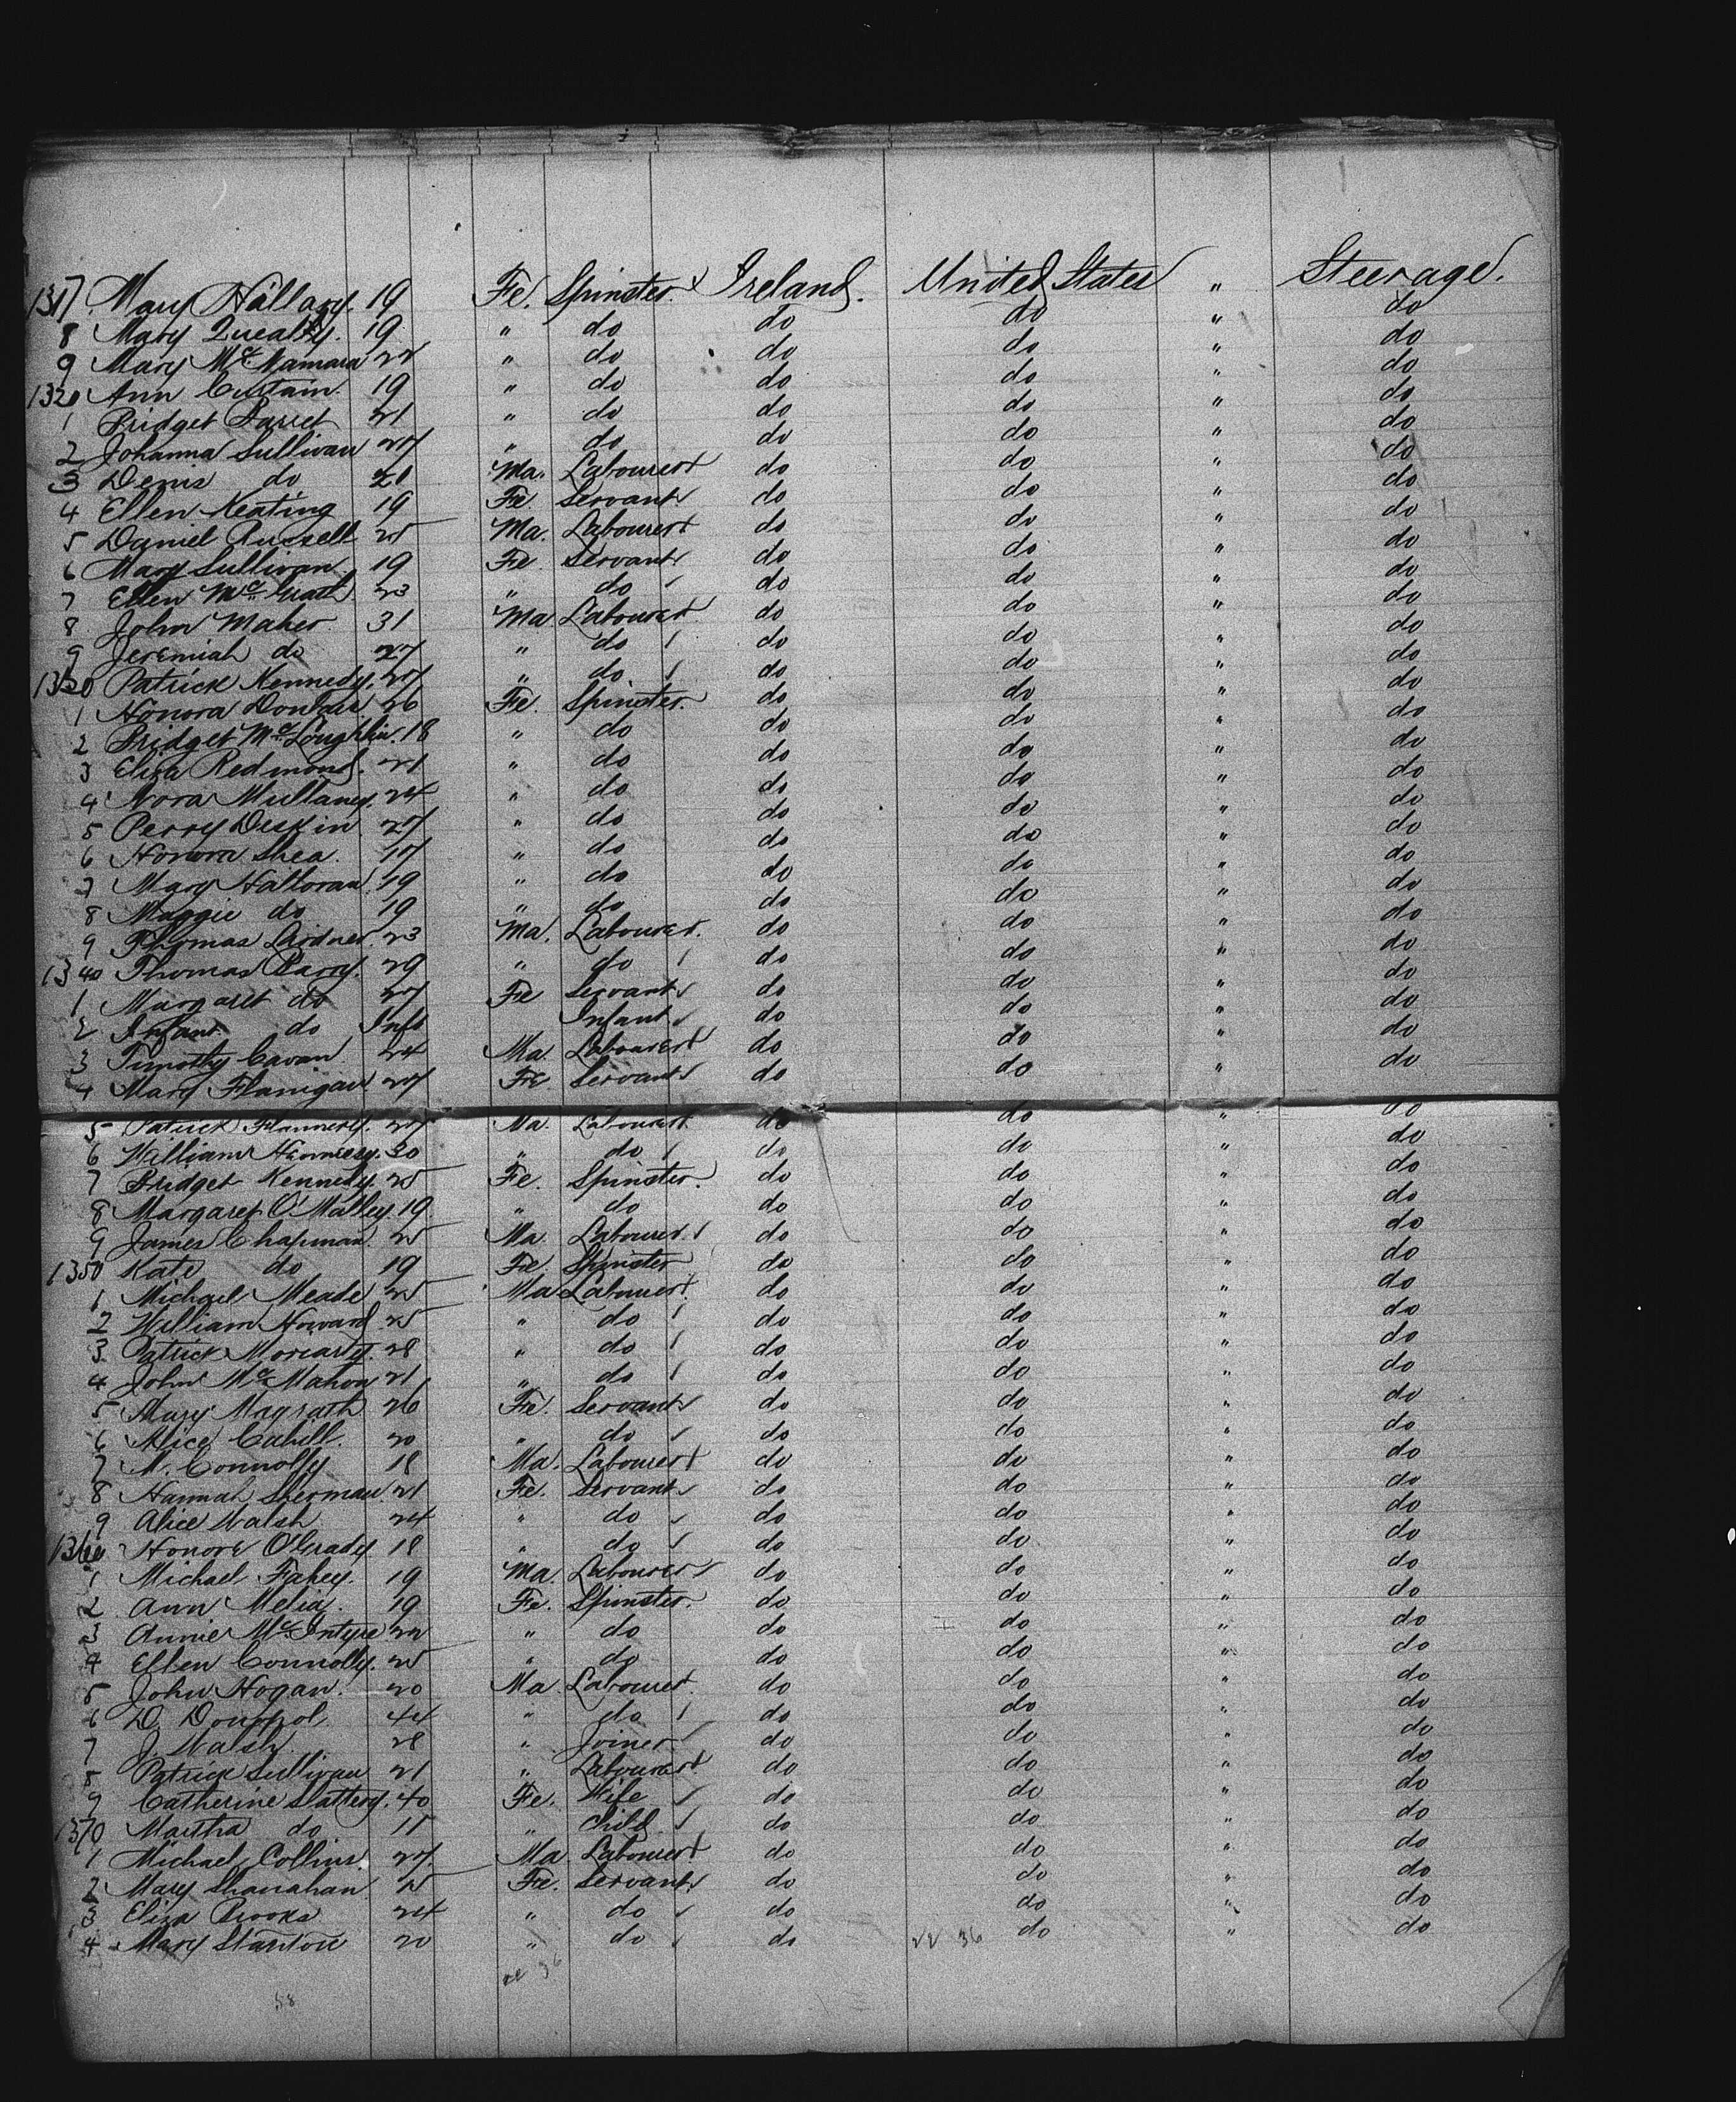 1317 Mary Hallary. 19 Fe. Spinster. Ireland. United States " Steerage.
8 Mary Quealty. 19 " do do do " do
9 Mary McNamara 22 " do do do " do
1320 Ann Curtain. 19 " do do do " do
1 Bridget Barret 21 " do do do " do
2 Johanna Sullivan 27 " do do do " do
3 Denis do 21 Ma. Labourer do do " do
4 Ellen Keating 19 Fe. Servant do do " do
5 Daniel Russell 25 Ma. Labourer do do " do
6 Mary Sullivan 19 Fe Servant do do " do
7 Ellen McGrath. 23 " do do do " do
8 John Maher. 31 Ma Labourer. do do " do
9 Jeremiah do 27 " do do do " do
1330 Patrick Kennedy. 27 " do do do " do
1 Honora 26 Fe. Spinster. do do " do
2 Bridget McLoughlin. 18 " do do do " do
3 Eliza Redmond. 21 " do do do " do
4 Nora Mullaney. 24 " do do do " do
5 Perry Deskin 27 " do do do " do
6 Honora Shea. 17 " do do do " do
7 Mary Halloran. 19 " do do do " do
8 Maggie do 19 " do do do " do
9 Thomas 23 Ma. Labourer. do do " do
1340 Thomas Barry. 29 " do do do " do
1 Margaret do 27 Fe Servant do do " do
2 Infant do Inft Infant do do " do
3 Timothy Cavan 24 Ma. Labourer do do " do
4 Mary Flanigan 27 Fe Servant do do " do
5 Patrick Flannery. 27 Ma. Labourer do do " do
6 William Hennessy. 30 " do do do " do
7 Bridget Kennedy. 25 Fe. Spinster. do do " do
8 Margaret O'Malley. 19. " do do do " do
9 James Chapman. 25 Ma. Labourer. do do " do
1350 Kate do 19 Fe. Spinster do do " do
1 Michael Meade 25 Ma Labourer. do do " do
2 William Howard. 25 " do do do " do
3 Patrick Moriarty. 28 " do do do " do
4 John McMahon 21 " do do do " do
5 Mary Magrath 26 Fe. Servant do do " do
6 Alice Cahill. 20 " do do do " do
7 M. Connolly 18 Ma. Labourer do do " do
8 Hannah Sherman. 21 Fe. Servant do do " do
9 Alice Walsh 24 " do do do " do
1360 Honore O'Grady. 18 " do do do " do
1 Michael Fahey. 19 Ma. Labourer do do " do
2 Ann Melia. 19 Fe. Spinster. do do " do
3 Annie McIntyre 22 " do do do " do
4 Ellen Connolly. 25 " do do do " do
5 John Hogan. 20 Ma. Labourer. do do " do
6 D. 44 " do do do " do
7 J. Walsh. 28 " Joiner do do " do
8 Patrick Sullivan 21 " Labourer do do " do
9 Catherine Slattery. 40 Fe. Wife do do " do
1370 Martha do 11 " Child. do do " do
1 Michael Collins. 27. Ma. Labourer do do " do
2 Mary Shanahan. 15 Fe. Servant do do " do
3 Eliza Brooks 24 " do do do " do
4 Mary Stanton 20 " do do 22 36 do " do
22 36
58